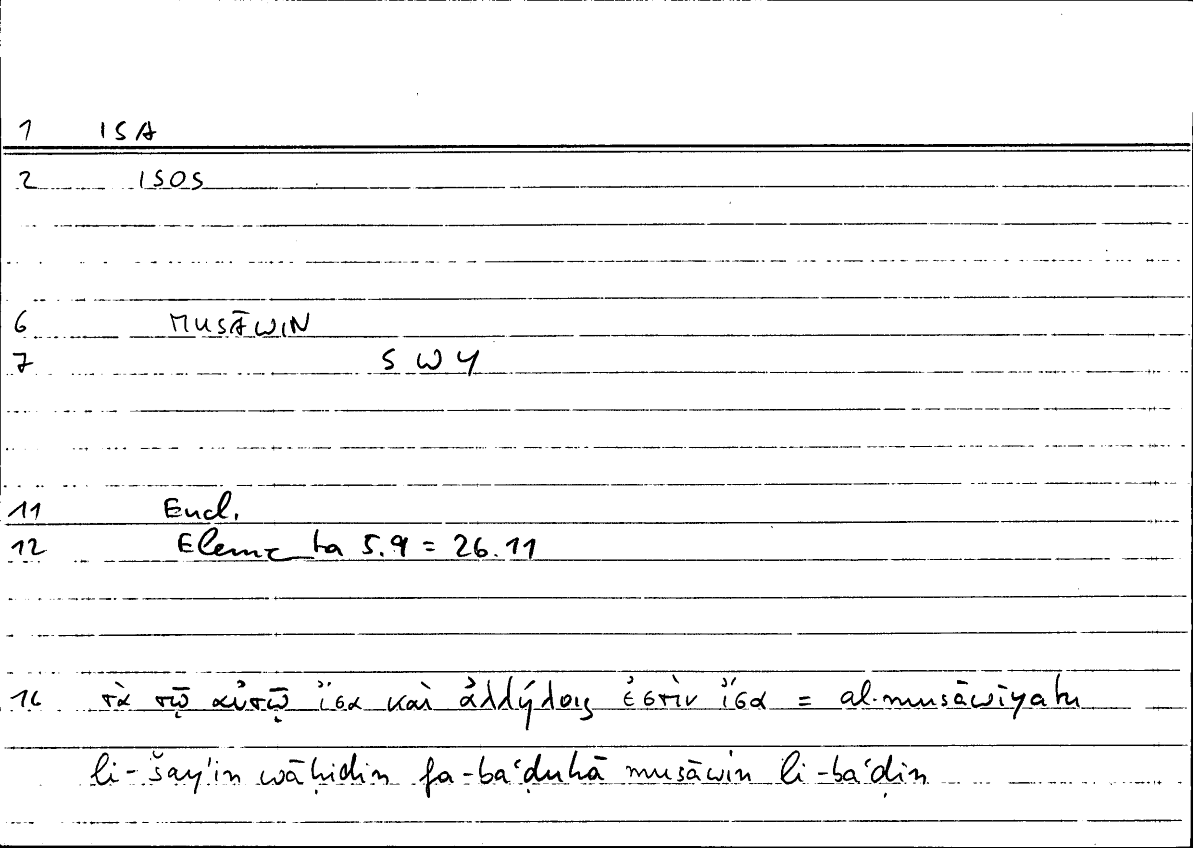 1 ISA
2 ISOS
6 MUSĀWIN
7 S W Y
11 Eucl.
12 Elementa 5.9 = 26.11
16 τὰ τῷ αὐτῷ ἴσα καὶ ἀλλήλοις ἐστὶν ἴσα = al-musāwīyatu
li-šay'in wāḥidin fa-ba‘ḍuhā musāwin li-ba‘ḍin